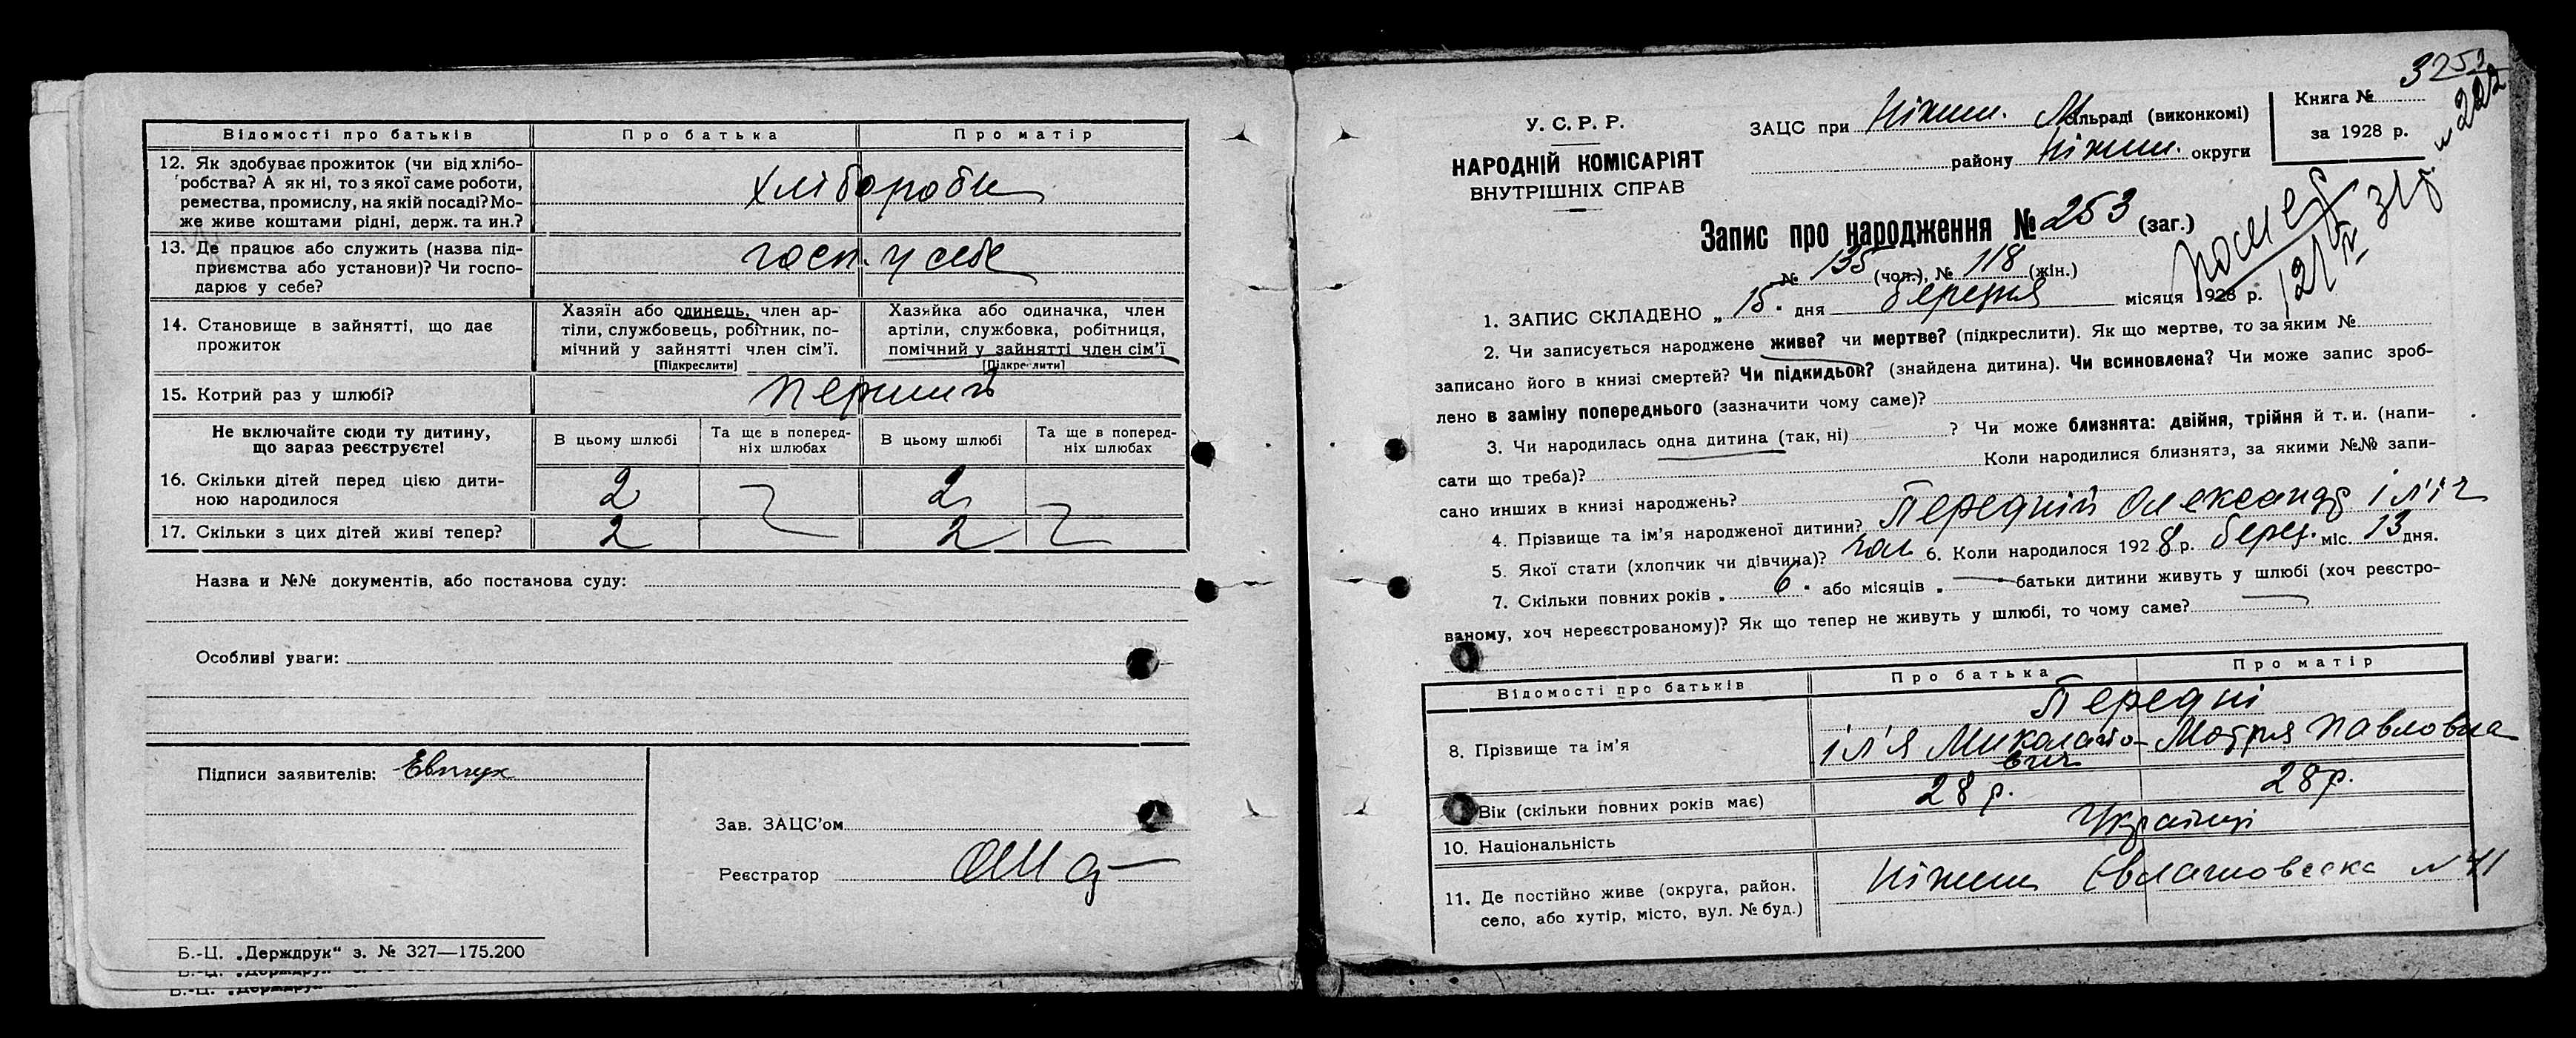 Відомості про батьків Про батька Про матір
12. Як здобуває прожиток (чи від хлібо-
робства? А як ні, то з якої саме роботи,
ремества, промислу, на якій посаді? Мо-
же живе коштами рідні, держ. та ин.?
хлібороби
13. Де працює або служить (назва під-
приємства або установи)? Чи госпо-
дарює у себе?
госп. у себе
14. Становище в зайнятті, що дає
прожиток
Хазяїн або одинець, член ар-
тіли, службовець, робітник, по-
мічний у зайнятті член сім'ї.
[Підкреслити]
Хазяйка або одиначка, член
артіли, службовка, робітниця,
помічний у зайнятті член сім'ї
[Підкреслити]
15. Котрий раз у шлюбі? перший
Не включайте сюди ту дитину,
що зараз реєструєте!
В цьому шлюбі
Та ще в поперед-
ніх шлюбах
В цьому шлюбі
Та ще в поперед-
ніх шлюбах
16. Скільки дітей перед цією дити-
ною народилося
2 2
17. Скільки з цих дітей живі тепер? 2 2
Назва и №№ документів, або постанова суду:
Особливі уваги:
Підписи заявителів:
Зав. ЗАЦС'ом
Реєстратор
Б.-Ц. „Держдрук" з. № 327—175.200
Б.-Ц. „Держдрук"
Б.-Ц. „Держдрук"
У. С. Р. Р.
НАРОДНІЙ КОМІСАРІЯТ
ВНУТРІШНІХ СПРАВ
ЗАЦС при Ніжин. М сільраді (виконкомі)
району Ніжин. округи
Книга № 3
за 1928 р.
253
222
Запис про народження № 253 (заг.)
№ 135 (чол.), № 118 (жін.)
1. ЗАПИС СКЛАДЕНО „ 15 " дня березня місяця 1928 р.
2. Чи записується народжене живе? чи мертве? (підкреслити). Як що мертве, то за яким №
записано його в книзі смертей? Чи підкидьок? (знайдена дитина). Чи всиновлена? Чи може запис зроб-
лено в заміну попереднього (зазначити чому саме)?
3. Чи народилась одна дитина (так, ні) ? Чи може близнята: двійня, трійня й т. и. (напи-
сати що треба)? Коли народилися близнята, за якими №№ запи-
сано инших в книзі народжень?
4. Прізвище та ім'я народженої дитини? Передній Олександр Ілліч
5. Якої стати (хлопчик чи дівчина)? чол 6. Коли народилося 1928 р. берез. міс. 13 дня.
7. Скільки повних років „ 6 " або місяців „ — " батьки дитини живуть у шлюбі (хоч реєстро-
ваному, хоч нереєстрованому)? Як що тепер не живуть у шлюбі, то чому саме?
Відомості про батьків Про батька Про матір
Передні
8. Прізвище та ім'я Ілля Миколайо-
вич Мотря Павловна
Вік (скільки повних років має) 28 р. 28 р.
10. Національність Українці
11. Де постійно живе (округа, район.
село, або хутір, місто, вул. № буд.)
Ніжин № 41